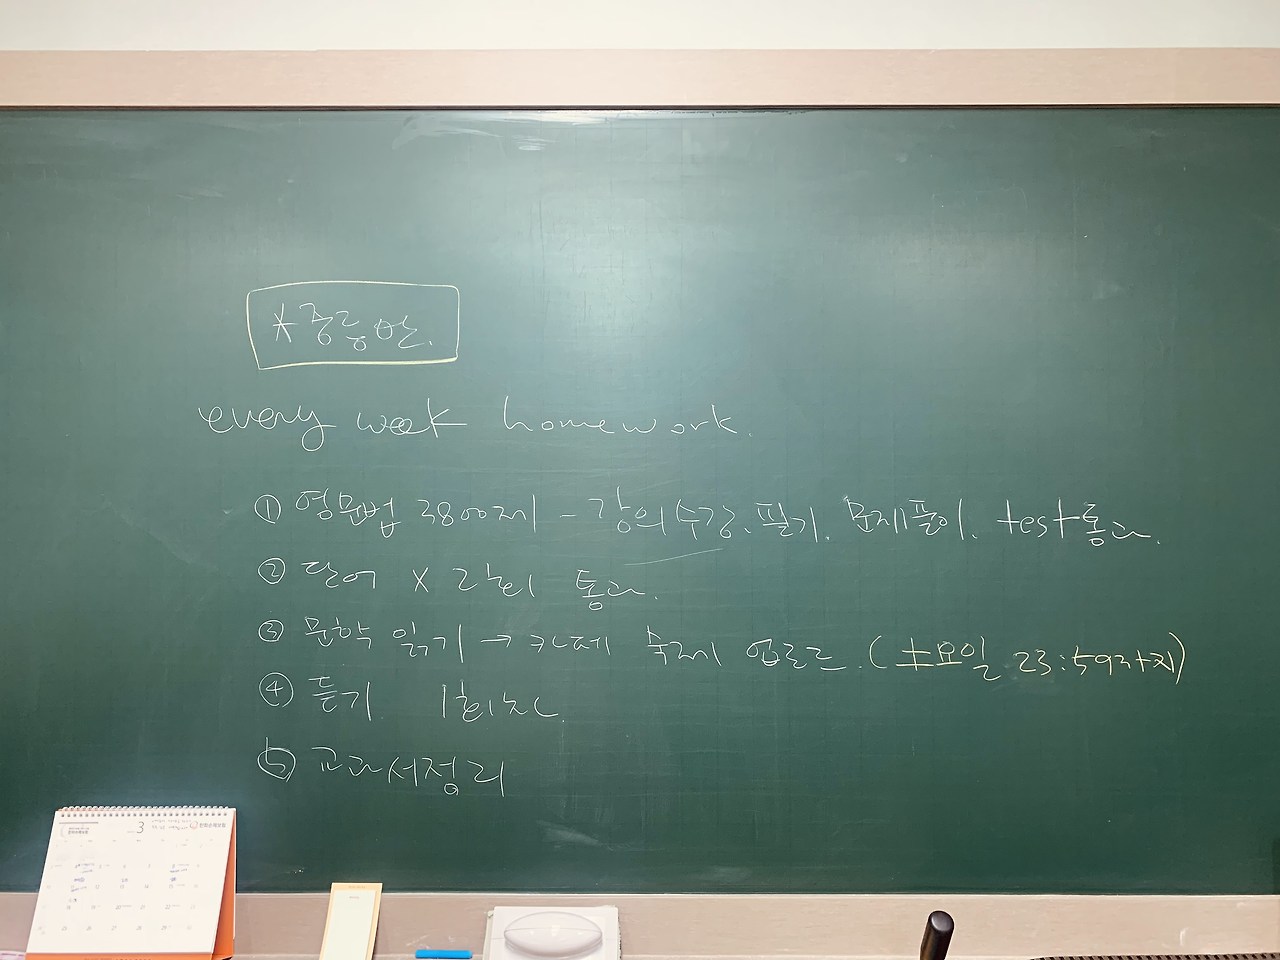 * 중등반.
every week homework.
① 영문법 3800제 - 강의수강, 필기, 문제풀이, test통과.
② 단어 x 2회 통과.
③ 문학 읽기 → 카페 숙제 업로드. (토요일 23:59까지)
④ 듣기 1회차.
⑤ 교과서정리
3